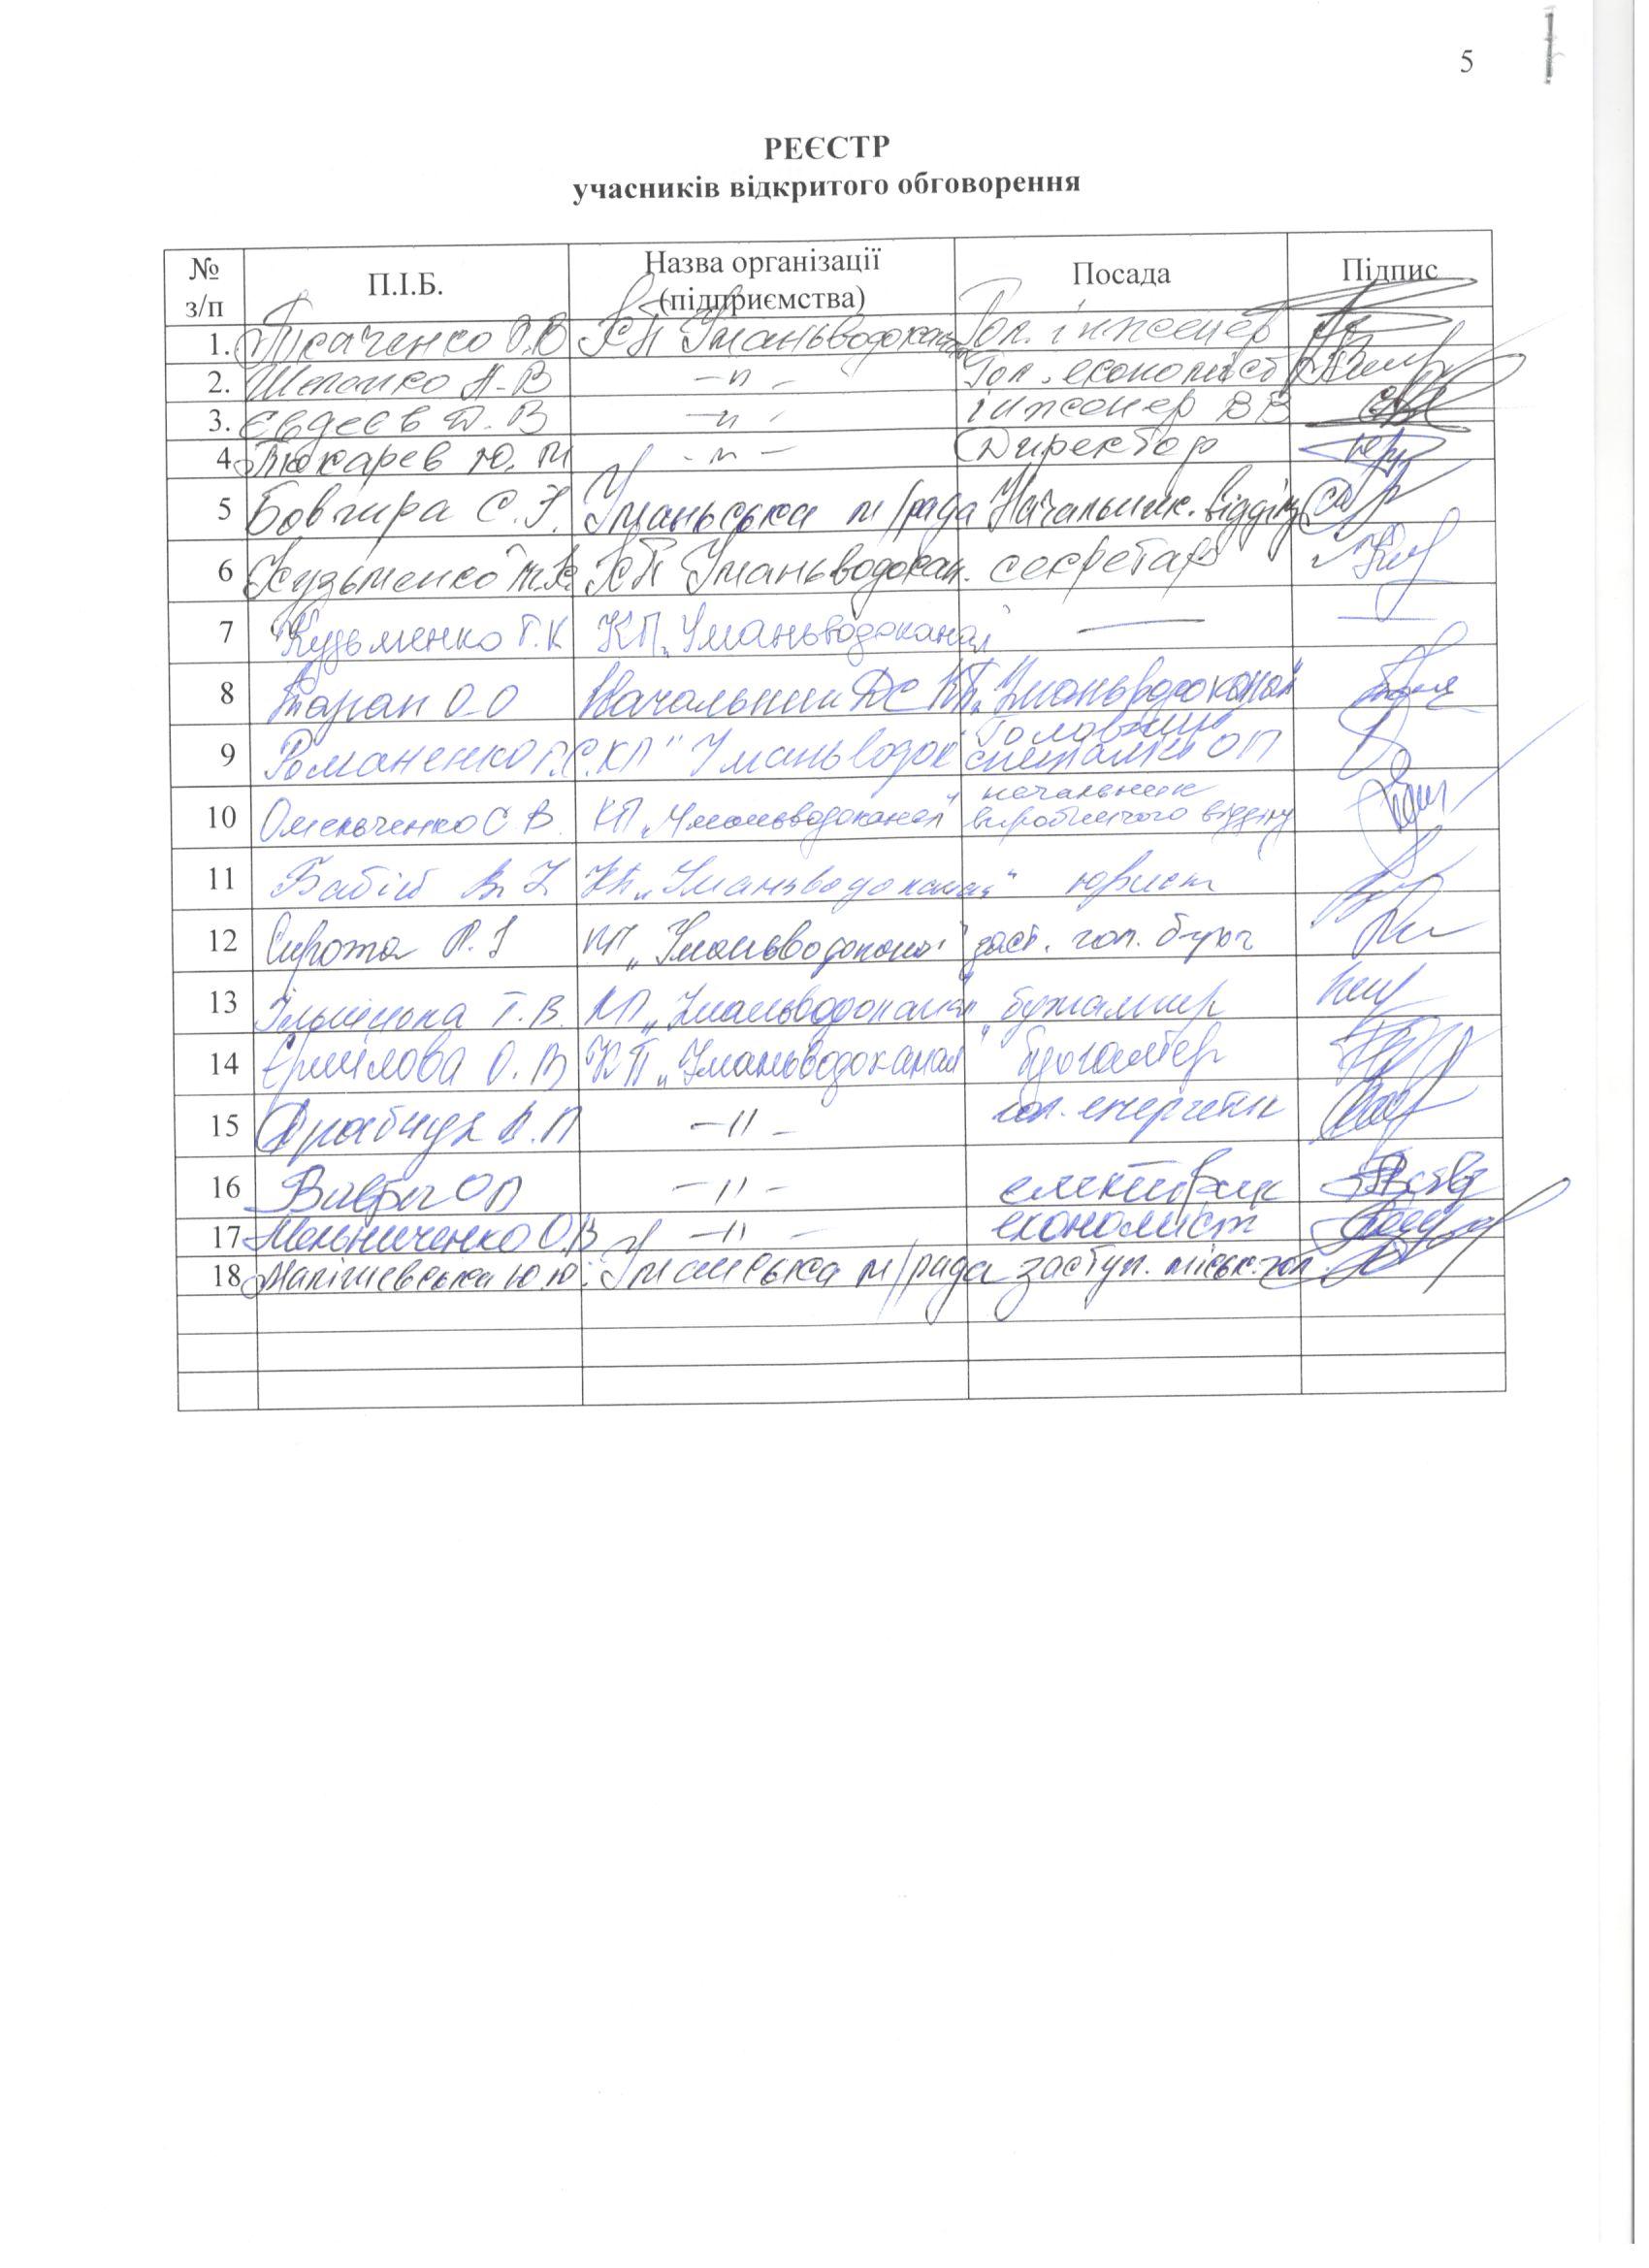 5
РЕЄСТР
учасників відкритого обговорення
№ з/п П.І.Б. Назва організації (підприємства) Посада Підпис
1. Ткаченко О.В КП Уманьводоканал Гол. інженер
2. Шепанко Н.В —"— Гол. економіст
3. Євдеєв Д.В —"— інженер ВВ
4. Тюкарев Ю.М —"— Директор
5 Бовгира С.І. Уманська м/рада Начальник. відділу
6 Кузьменко Т.К КП Уманьводокан. секретар
7 Кузьменко Т.К КП „Уманьводоканал — —
8 Таран О.О Начальник ДС КП „Уманьводоканал"
9 Романенко Г.С. КП "Уманьводок" Головний спеціаліст ОП
10 Омельченко С В. КП „Уманьводоканал" начальник виробничого відділу
11 Бабій В. І КП „Уманьводоканал" юрист
12 Сирота Р. І КП „Уманьводоканал" заст. гол. бухг
13 Т.В. КП „Уманьводоканал" бухгалтер
14 Єрмілова О. В КП „Уманьводоканал" бухгалтер
15 Драбчук В.П —"— гол. енергетик
16 О П —"— електрик
17 Мельниченко О.В —"— економист
18 Ю.Ю. Уманська м/рада заступ. міськ. гол.